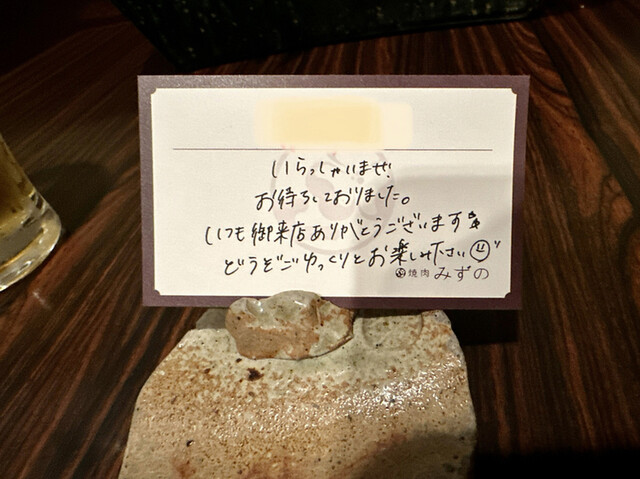 いらっしゃいませ!
お待ちしておりました。
いつも御来店ありがとうございます
どうぞごゆっくりとお楽しみ下さい
焼肉 みずの